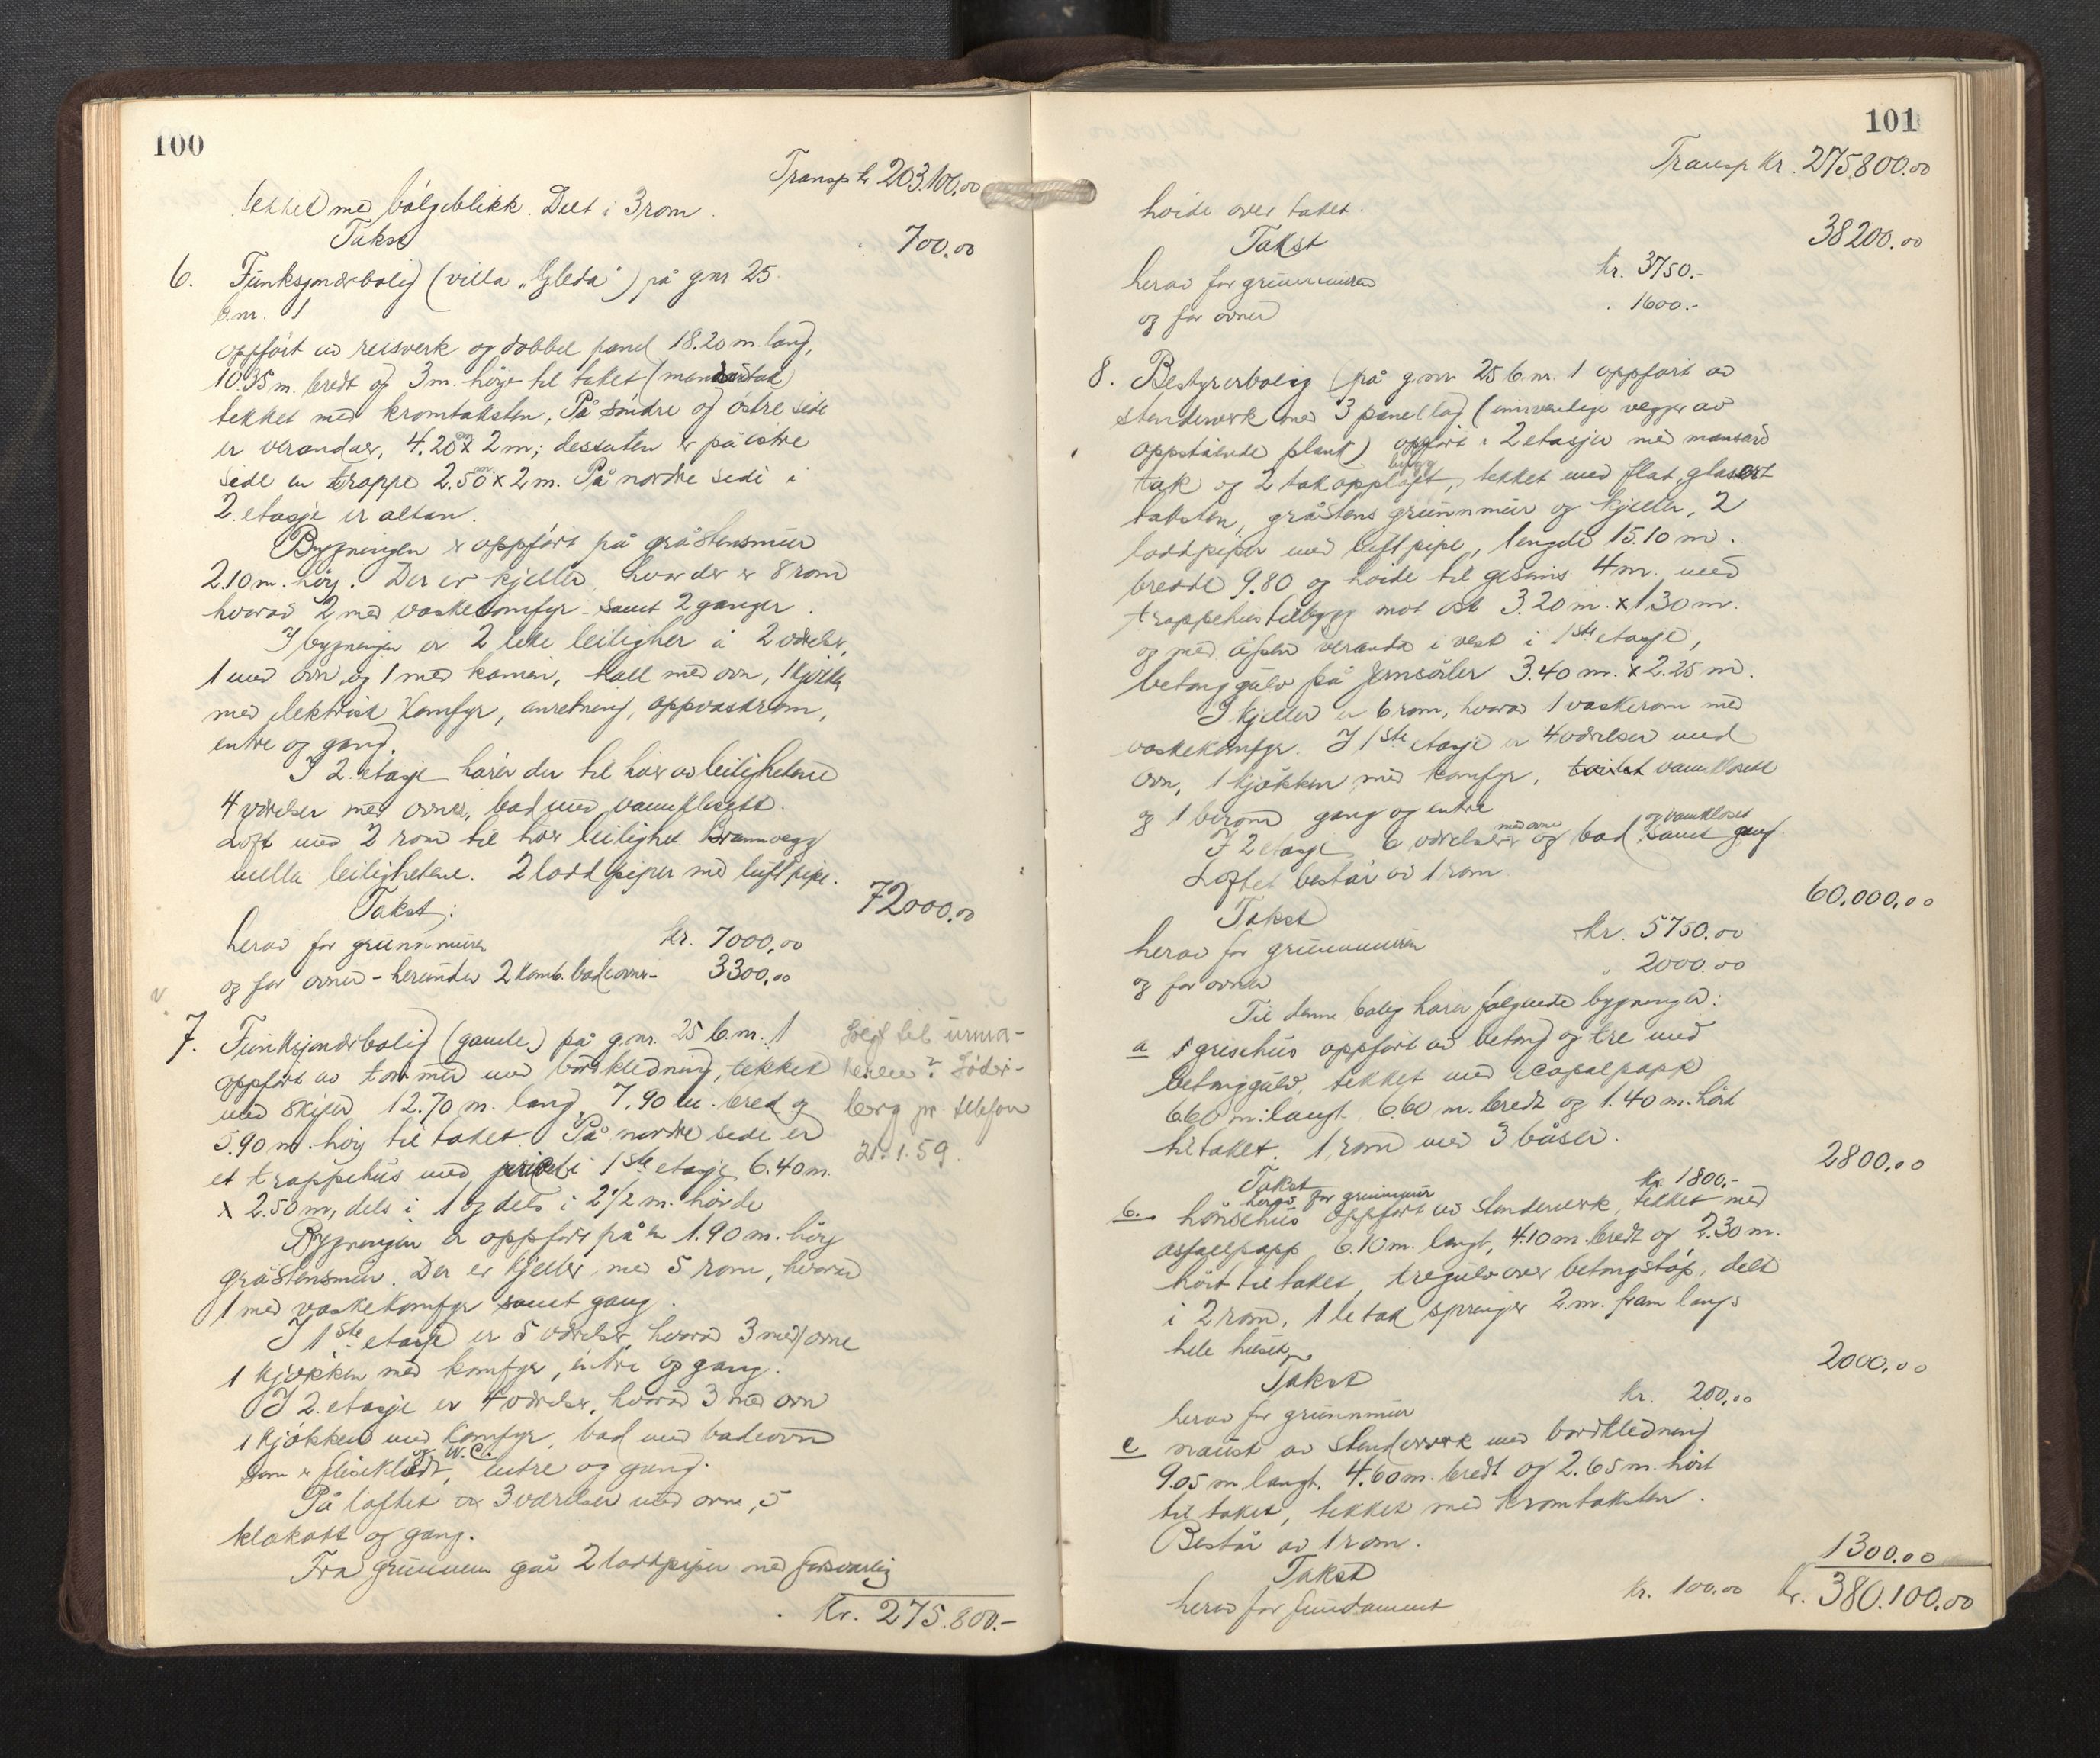 100
Transp kr 203.100.00
tekket med bølgeblikk. Delt i 3 rom.
Takst 700.00
6. Funksjonærbolig (villa "Gleda") på g.nr 25
b.nr. 1
oppført av reisverk og dobbel panel 18.20 m. lang,
10.35 m. bredt og 3 m. høye til taket (mansardtak)
tekket med kromtaksten. På søndre og østre side
er verandaer, 4.20 x 2 m; dessuten er på østre
side en trappe 2.50 x 2 m. På nordre side i
2. etasje er altan.
Bygningen er oppført på gråstensmur
2.10 m. høy. Der er kjeller hvor der er 8 rom
hvorav 2 med vaskekomfyr samt 2 ganger.
I bygningen er 2 like leiligher a 2 værelser,
1 med ovn og 1 med kamin, hall med ovn, 1 kjøkken
med elektrisk komfyr, anretning, oppvaskrom,
entre og gang.
I 2. etasje hører der til hver av leilighetene
4 værelser med ovner, bad med vannklosett.
Loft med 2 rom til hver leilighet. Brannvegg
mellem leilighetene. 2 loddpiper med luftpipe.
Takst: 72000.00
herav for grunnmuren kr. 7000.00
og for ovner - herunder 2 komb. badeovner - 3300.00
7. Funksjonærbolig (gamle) på g.nr. 25 b.nr. 1
oppført av tømmer med bordkledning, tekket
med skifer 12.70 m. lang, 7.90 m. bred og
5.90 m. høy til taket. På nordre side er
et trappehus med i 1ste etasje 6.40 m.
x 2.50 m, dels i 1 og dels i 2 1/2 m. høide
solgt til urma-
keren? Söder-
berg pr. telefon
21.1.59.
Bygningen er oppført på en 1.90 m. høy
gråstensmur. Der er kjeller med 5 rom, hvorav
1 med vaskekomfyr samt gang.
I 1ste etasje er 5 værelser, hvorav 3 med ovne
1 kjøkken med komfyr, entre og gang.
I 2. etasje er 4 værelser, hvorav 3 med ovn
1 kjøkken med komfyr, bad med badeovn
og W.C.
som er flisekledt, entre og gang.
På loftet er 3 værelser med ovne, 5
klækott og gang.
Fra grunnen går 2 loddpiper med forsvarlig
Kr. 275.800.-
101
Transp Kr. 275800.00
høide over taket.
Takst 38200.00
herav for grunnmuren kr. 3750.-
og for ovner 1600.-
8. Bestyrerbolig på g.nr 25 b.nr. 1 oppført av
stenderverk med 3 panellag (innvendige vegger av
oppstående plank) oppført i 2 etasjer med mansard
bygg
tak og 2 takoppløft, tekket med flat, glasert
taksten, gråstens grunnmur og kjeller, 2
loddpiper med luftpipe, lengde 15.10 m.
bredde 9.80 og høide til gesims 4 m. med
trappehustilbygg mot øst 3.20 m. x 1.30 m.
og med åpen veranda i vest i 1ste etasje,
betonggulv på jernsöiler 3.40 m. x 2.25 m.
I kjeller er 6 rom, hvorav 1 vaskerom med
vaskekomfyr. I 1ste etasje er 4 værelser med
ovn, 1 kjøkken med komfyr, toilet vannklosett
og 1 birom gang og entre
med ovne og vannkloset
I 2 etasje 6 værelser og bad, samt gang.
Loftet består av 1 rom
Takst 60.000.00
herav for grunnmuren kr. 5750.00
og for ovner 2000.00
Til denne bolig hører følgende bygninger:
a grisehus oppført av betong og tre med
betonggulv, tekket med papp
6.60 m. langt, 6.60 m. bredt og 1.40 m. høit
til taket. 1 rom med 3 båser.
Takst 2800.00
herav for grunnmur kr. 1800.-
b. hönsehus oppført av stenderverk, tekket med
asfaltpapp 6.10 m. langt, 4.10 m. bredt og 2.30 m.
høit til taket, tregulv over betongstøp, delt
i 2 rom. 1 letak springer 2 m. fram langs
hele huset
Takst 2000.00
herav for grunnmur kr. 200.00
c naust av stenderverk med bordkledning
9.05 m. langt, 4.60 m. bredt og 2.65 m. høit
til taket, tekket med kromtaksten.
Består av 1 rom.
Takst 1300.00
herav for fundament kr. 100.00 kr. 380.100.00